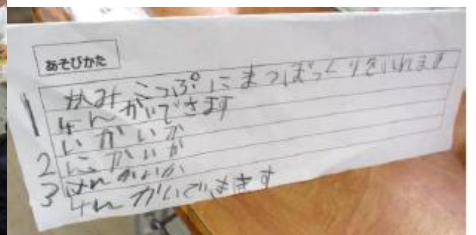 あそびかた
1 かみこっぷにまつぼっくりをいれます
4んかいできます
いかいか
2 にかいか
3 はんかいか
4んかいできます